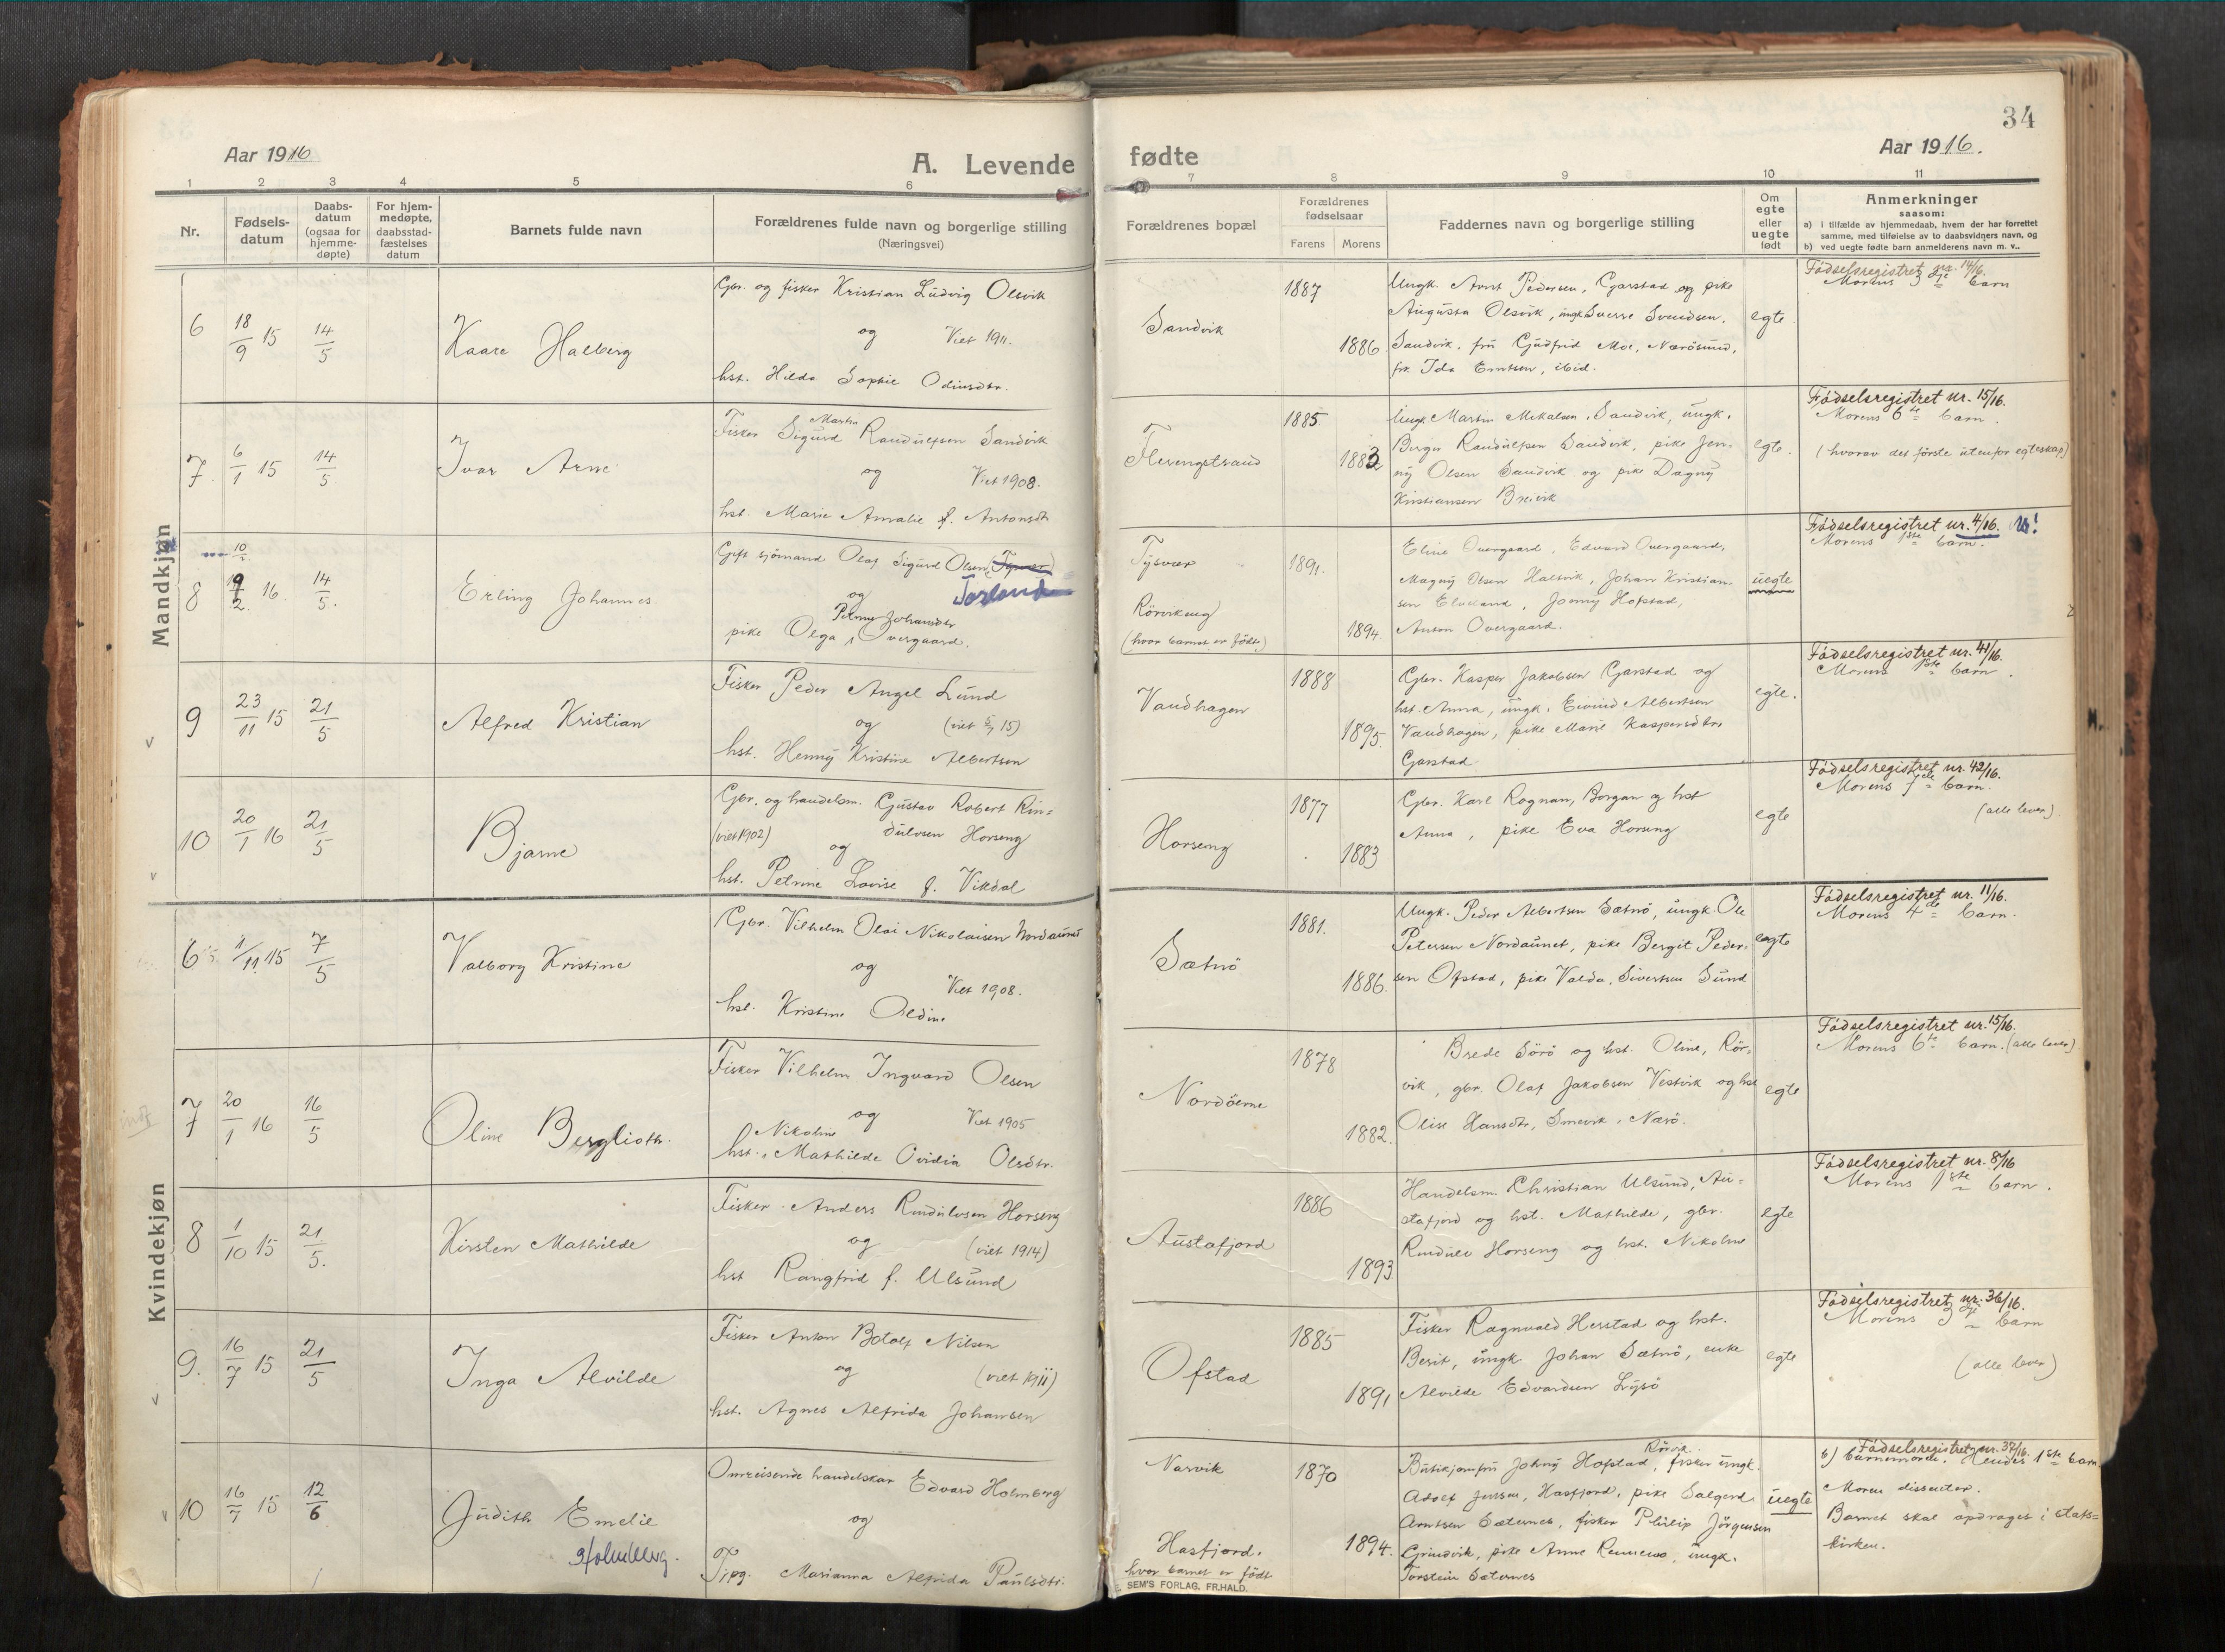 34
Aar 1916
A. Levende
fødte
Aar 1916.
1 2 3 4 5 6 7 8 9 10 11
Nr.
Fødsels-
datum
Daabs-
datum
(ogsaa for
hjemme-
døpte)
For hjem-
medøpte,
daabsstad-
fæstelses
datum
Barnets fulde navn
Forældrenes fulde navn og borgerlige stilling
(Næringsvei)
Forældrenes bopæl
Forældrenes
fødselsaar
Farens Morens
Faddernes navn og borgerlige stilling
Om
egte
eller
uegte
født
Anmerkninger
saasom:
a) i tilfælde av hjemmedaab, hvem der har forrettet
samme, med tilføielse av to daabsvidners navn, og
b) ved uegte fødte barn anmelderens navn m. v..
Mandkjøn
6
18/9 15
14/5
Kaare Halberg
Gbr. og fisker Kristian Ludvig Olsvik
og Viet 1911.
hst. Hilda Sophie Odinsdtr.
Sandvik
1887
1886
Ungk. Arnt Pedersen, Garstad og pike
Augusta Olsvik, ungk Sverre Svendsen,
Sandvik, fru Gudfrid Moe, Nærösund,
frk. Ida Erntsen, ibid.
egte
Fødselsregistret nr. 14/16.
Morens 3die barn
7.
6/1 15
14/5.
Ivar Arne
Martin
Fisker Sigurd Randulfsen Sandvik
og Viet 1908.
hst. Marie Amalie f. Antonsdtr
Flerengstrand
1885.
1883
Ungk. Martin Mikalsen, Sandvik, ungk.
Berger Randulfsen Sandvik, pike Jen-
ny Olsen Sandvik og pike Dagny
Kristiansen Breivik
egte.
Fødselsregistret nr. 15/16.
Morens 6te barn.
(hvorav det første utenfor egteskap)
10/2
8
2. 16.
14/5.
Erling Johannes.
Gift sjömand Olaf Sigurd Olsen (Tysvær)
og Torland
Petrine Johansdtr
pike Olga Overgaard.
Tysvær
Rörvikeng
(hvor barnet er født)
1891.
1894.
Eline Overgaard, Edvard Overgaard,
Magny Olsen Halsvik, Johan Kristian-
sen Elveland, Jonny Hofstad,
Anton Overgaard.
uegte
Fødselsregistret nr. 4/16. N!
Morens 1ste barn.
9
23/11 15
21/5
Alfred Kristian
Fisker Peder Angel Lund
og (viet 15)
hst. Henny Kristine Albertsen
Vandhagen
1888
1895.
Gbr. Kasper Jakobsen Garstad og
hst. Anna, ungk. Eivind Albertsen
Vandhagen, pike Marie Kaspersdtr.
Garstad.
egte.
Fødselsregistret nr. 41/16.
Morens 1ste barn.
10
20/1 16
21/5
Bjarne
Gbr. og handelsm. Gustav Robert Rin=
(viet 1902) dulvsen Horseng
og
hst. Petrine Lovise f. Vikdal
Horseng
1877
1883
Gbr. Karl Rognan, Borgan og hst
Anna, pike Eva Horseng
egte
Fødselsregistret nr. 42/16.
Morens 7de barn.
(alle lever)
Kvindekjøn
6
1/11 15
7/5
Valborg Kristine
Gbr. Vilhelm Olai Nikolaisen Nordaunet
og
Viet 1908.
hst. Kristine Oldine
Sætnö
1881.
1886.
Ungk. Peder Albertsen Sætnö, ungk. Ole
Petersen Nordaunet, pike Bergit Peder-
sen Ofstad, pike Valda Sivertsen Sund
egte
Fødselsregistret nr. 11/16.
Morens 4de barn.
7
20/1 16
16/5
Oline Berglioth.
Fisker Vilhelm Ingvard Olsen
og Viet 1905
Nikoline
hst. Mathilde Ovidia Olsdtr.
Nordöerne
1878
1882.
Brede Sörö og hst. Oline, Rör-
vik, gbr. Olaf Jakobsen Vestvik og hst
Olise Hansdtr, Smevik, Nærö.
egte
Fødselsregistret nr. 15/16.
Morens 6te barn. (alle lever)
8
1/10 15
21/5.
Kirsten Mathilde
Fisker Anders Rindulvsen Horseng
og (viet 1914)
hst Rangfrid f. Ulsund
Austafjord
1886
1893.
Handelsm. Christian Ulsund, Au-
stafjord og hst. Mathilde, gbr.
Rindulv Horseng og hst. Nikoline
egte
Fødselsregistret nr. 8/16
Morens 1ste barn.
9.
16/7 15
21/5
Inga Alvilde
Fisker Anton Botolf Nilsen
og (viet 1911)
hst. Agnes Alfrida Johansen
Ofstad
1885
1891
Fisker Ragnvald Herstad og hst.
Berit, ungk. Johan Sætnö, enke
Alvilde Edvardsen Lysö
egte
Fødselsregistret nr. 36/16.
Morens 3die barn
(alle lever)
10
16/7 15
12/6
Judith Emelie
Holmberg.
Omreisende handelskar Edvard Holmberg
og
Tjpg. Marianna Alfrida Paulsdtr.
Narvik
Hasfjord.
hvor barnet er født
1870
1894.
Rörvik.
Butikjomfru Johny Hofstad, fisker ungk.
Adolf Jensen, Hasfjord, pike Salgerd
Arntsen Sæternes, fisker Philip Jörgensen
Grindvik, pike Anne Rennemo, ungk.
Torstein Sæternes
uegte
Fødselsregistret nr. 37/16.
b) barnemoren. Hendes 1ste barn
Moren dissenter.
Barnet skal opdrages i stats=
kirken.
SEM'S FORLAG. FR.HALD.